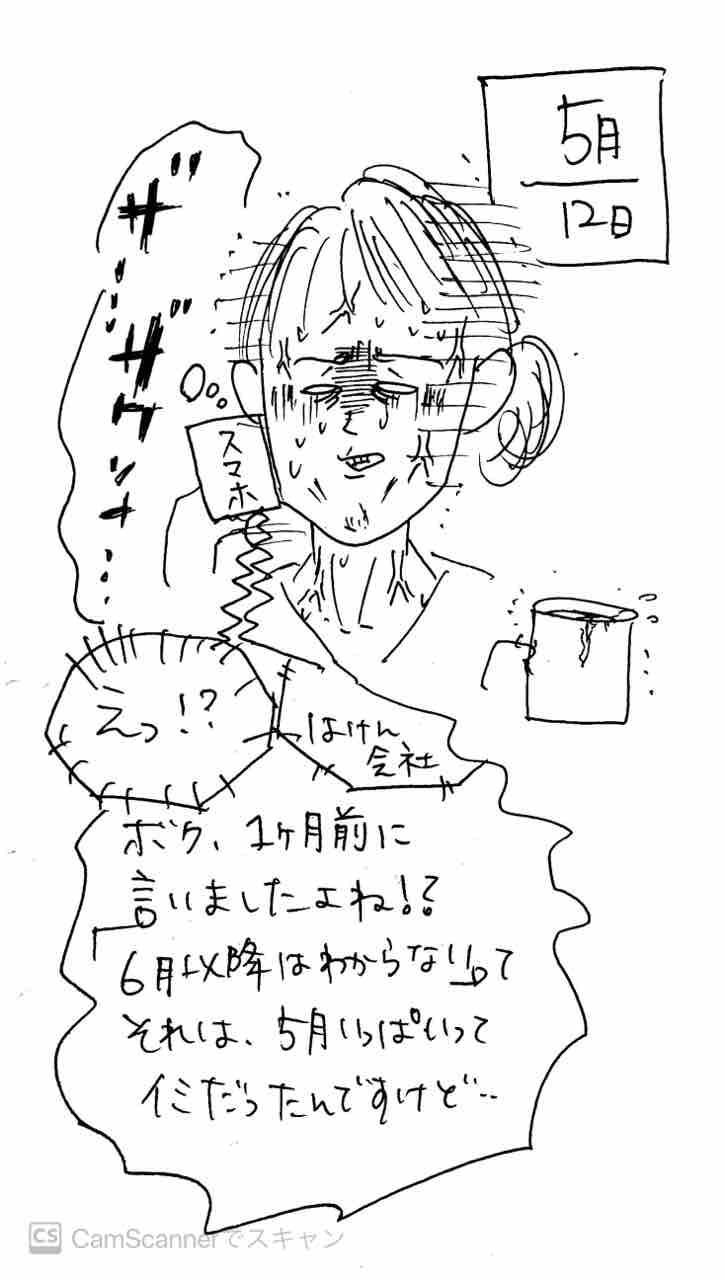 5月
12日
ザ…
ザケンナ…
スマホ
えっ!?
はけん
会社
ボク、1ヶ月前に
言いましたよね!?
「6月以降はわからない」って
それは、5月いっぱいって
イミだったんですけど…
CS CamScannerでスキャン